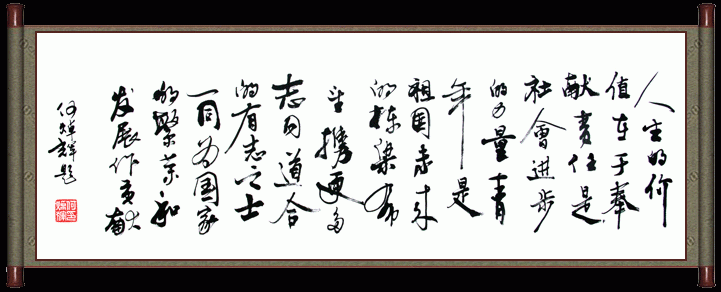 人生的价
值在于奉
献责任是
社會进步
的力量青
年是
祖国未来
的栋梁希
望携更多
志同道合
的有志之士
一同为国家
的繁荣和
发展作贡献
何焯輝题